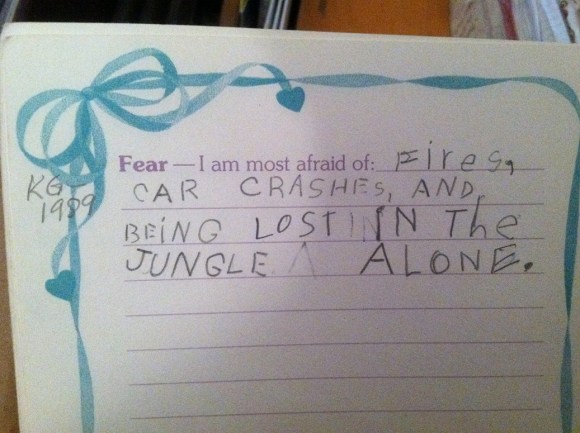 Fear — I am most afraid of: Fires,
KG-
1989
CAR CRASHES, AND,
BEING LOST IN The
JUNGLE ALONE.